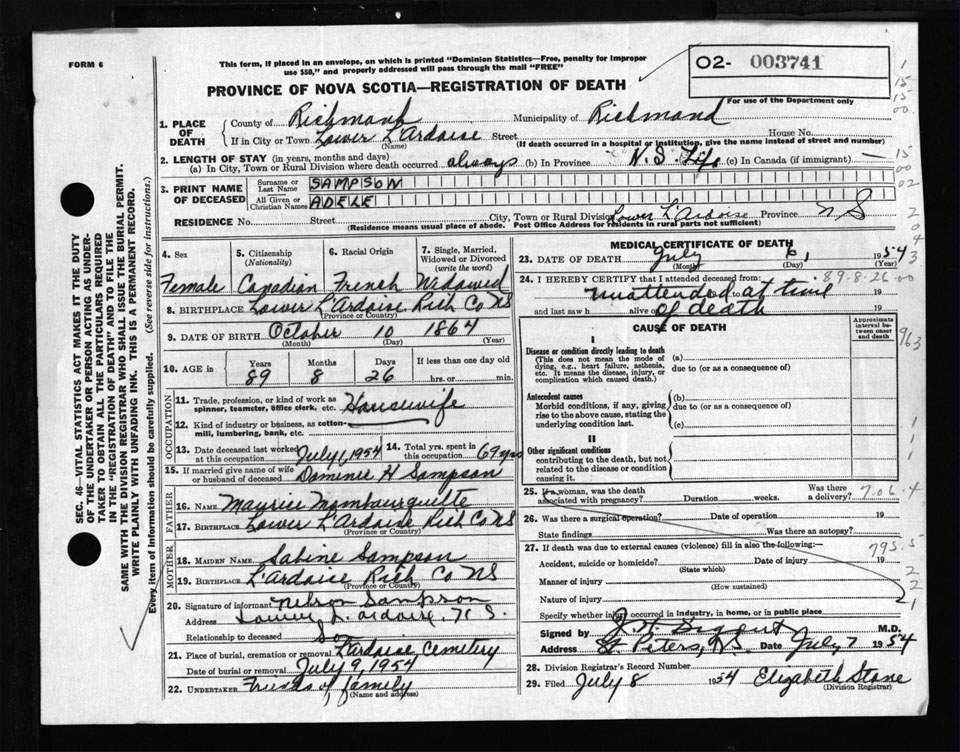 FORM 6
This form, if placed in an envelope, on which is printed "Dominion Statistics—Free, penalty for improper
use $50," and properly addressed will pass through the mail "FREE"
02- 003741
PROVINCE OF NOVA SCOTIA—REGISTRATION OF DEATH
For use of the Department only
1. PLACE OF DEATH
County of Richmond Municipality of Richmond
If in City or Town Lower L'Ardoise Street House No.
(Name) (If death occurred in a hospital or institution, give the name instead of street and number)
2. LENGTH OF STAY (in years, months and days)
(a) In City, Town or Rural Division where death occurred always (b) In Province N.S. Life (c) In Canada (if immigrant) —
3. PRINT NAME OF DECEASED
Surname or Last Name SAMPSON
All Given or Christian Names ADELE
RESIDENCE No. Street City, Town or Rural Division Lower L'Ardoise Province N S
(Residence means usual place of abode. Post Office Address for residents in rural parts not sufficient)
4. Sex 5. Citizenship (Nationality) 6. Racial Origin 7. Single, Married, Widowed or Divorced (write the word)
Female Canadian French Widowed
8. BIRTHPLACE Lower L'Ardoise Rich Co NS
(Province or Country)
9. DATE OF BIRTH October 10 1864
(Month) (Day) (Year)
10. AGE in Years Months Days If less than one day old
89 8 26 hrs. or min.
OCCUPATION
11. Trade, profession, or kind of work as spinner, teamster, office clerk, etc. Housewife
12. Kind of industry or business, as cotton-mill, lumbering, bank, etc.
13. Date deceased last worked at this occupation July 1, 1954 14. Total yrs. spent in this occupation 69 yrs
15. If married give name of wife or husband of deceased Dominic H Sampson
FATHER
16. NAME Maurice Mombourquette
17. BIRTHPLACE Lower L'Ardoise Rich Co NS
(Province or Country)
MOTHER
18. MAIDEN NAME Sabine Sampson
19. BIRTHPLACE L'Ardoise Rich Co NS
(Province or Country)
20. Signature of informant Nelson Sampson
Address Lower L'ardoise, N. S.
Relationship to deceased son
21. Place of burial, cremation or removal L'Ardoise Cemetery
Date of burial or removal July 9, 1954
22. UNDERTAKER Friends of family
(Name and address)
MEDICAL CERTIFICATE OF DEATH
23. DATE OF DEATH July 6, 1954
(Month) (Day) (Year)
89-8-26-00
24. I HEREBY CERTIFY that I attended deceased from:
unattended to at time 19
and last saw h alive on of death 19
CAUSE OF DEATH
Approximate interval between onset and death
I
Disease or condition directly leading to death (a)
(This does not mean the mode of dying, e.g., heart failure, asthenia, etc. It means the disease, injury, or complication which caused death.)
due to (or as a consequence of)
Antecedent causes (b)
Morbid conditions, if any, giving rise to the above cause, stating the underlying condition last.
due to (or as a consequence of)
(c)
II
Other significant conditions
contributing to the death, but not related to the disease or condition causing it.
25. If a woman, was the death associated with pregnancy? Duration weeks. Was there a delivery?
26. Was there a surgical operation? Date of operation 19
State findings Was there an autopsy?
27. If death was due to external causes (violence) fill in also the following:—
795.5
Accident, suicide or homicide? Date of injury 19
(State which)
Manner of injury
(How sustained)
Nature of injury
Specify whether injury occurred in industry, in home, or in public place
Signed by M.D.
Address St. Peters, N.S. Date July 7 1954
28. Division Registrar's Record Number
29. Filed July 8 1954 Elizabeth Stone
(Division Registrar)
SEC. 46—VITAL STATISTICS ACT MAKES IT THE DUTY
OF THE UNDERTAKER OR PERSON ACTING AS UNDER-
TAKER TO OBTAIN ALL THE PARTICULARS REQUIRED
IN THE "REGISTRATION OF DEATH" AND TO FILE THE
SAME WITH THE DIVISION REGISTRAR WHO SHALL ISSUE THE BURIAL PERMIT.
WRITE PLAINLY WITH UNFADING INK. THIS IS A PERMANENT RECORD.
Every item of information should be carefully supplied. (See reverse side for instructions.)